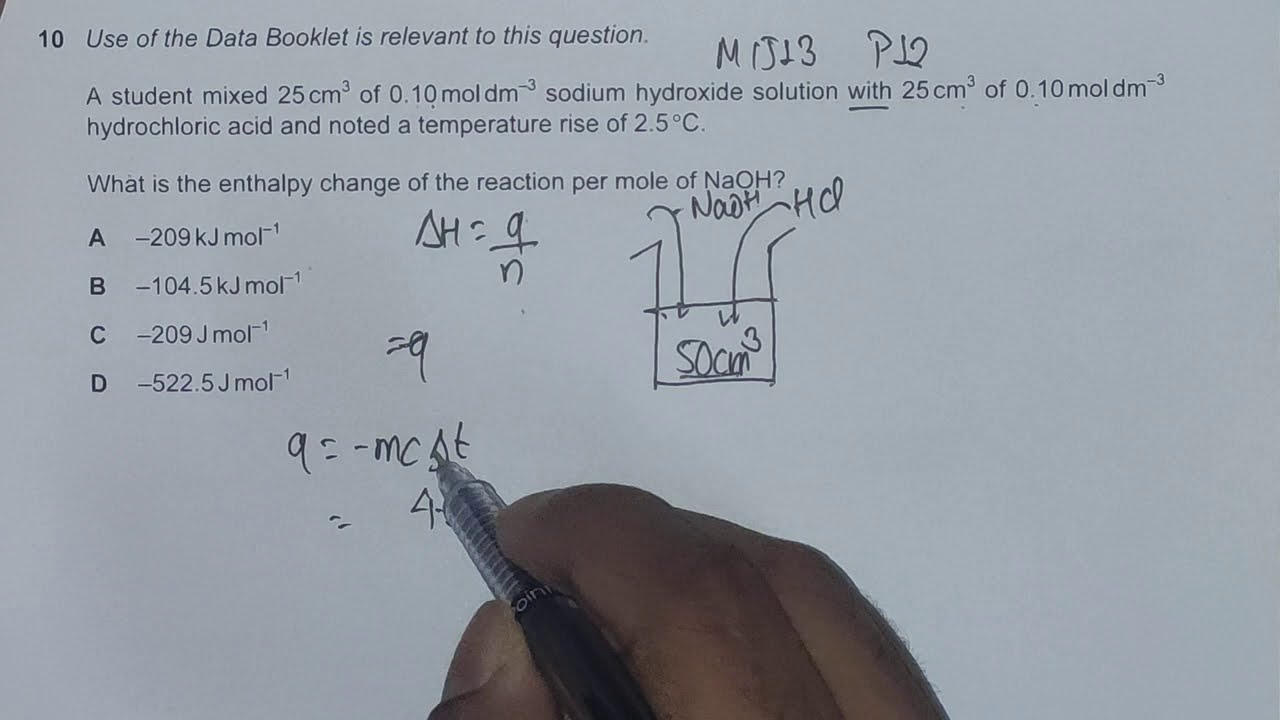 10 Use of the Data Booklet is relevant to this question.
M/J13 P12
A student mixed 25 cm³ of 0.10 mol dm⁻³ sodium hydroxide solution with 25 cm³ of 0.10 mol dm⁻³
hydrochloric acid and noted a temperature rise of 2.5 °C.
What is the enthalpy change of the reaction per mole of NaOH?
NaOH HCl
A –209 kJ mol⁻¹
ΔH = q/n
B –104.5 kJ mol⁻¹
C –209 J mol⁻¹
= q
50cm³
D –522.5 J mol⁻¹
q = -mcΔt
= 4